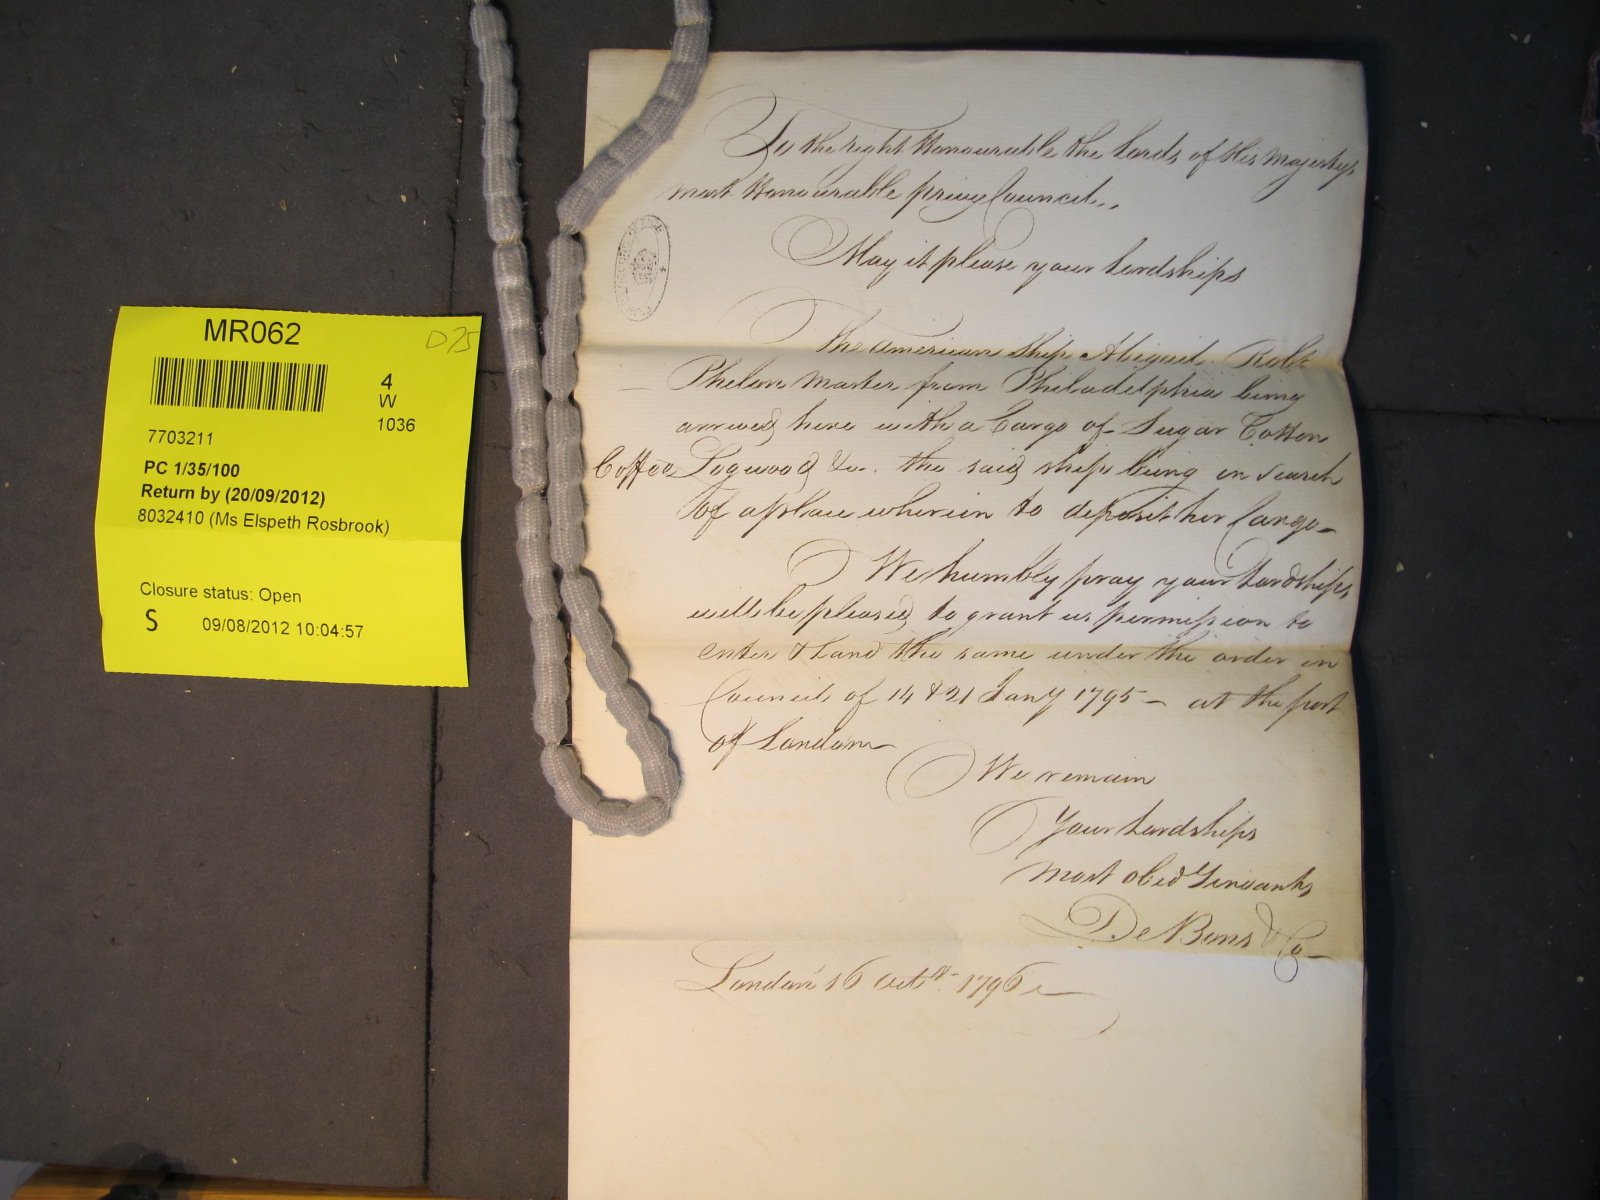 MR062
D75
4
W
1036
7703211
PC 1/35/100
Return by (20/09/2012)
8032410 (Ms Elspeth Rosbrook)
Closure status: Open
S 09/08/2012 10:04:57
To the right Honourable the Lords of His Majestys
most Honourable privy Council..
May it please your Lordships
The American Ship Abigail Robt
Phelan Master from Philadelphia being
arrived here with a Cargo of Sugar Cotton
Coffee Logwood &c. the said ship being in search
of a place wherein to deposit her Cargo
We humbly pray your Lordships
will be pleased to grant us permission to
enter & Land the same under the order in
Council of 14 & 21 Jany 1795 - at the port
of London
We remain
Your Lordships
most obed Servants
De Bons & Co
London 16 Octr. 1796